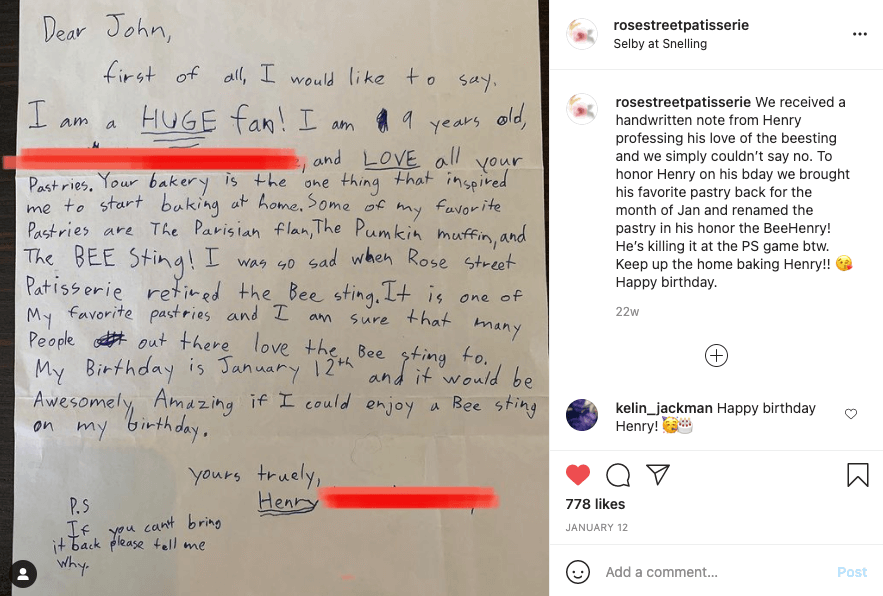 Dear John,
first of all, I would like to say.
I am a HUGE fan! I am 9 years old,
, and LOVE all your
Pastries. Your bakery is the one thing that inspired
me to start baking at home. Some of my favorite
Pastries are The Parisian flan, The Pumkin muffin, and
The BEE Sting! I was so sad when Rose street
Patisserie retired the Bee sting. It is one of
My favorite pastries and I am sure that many
People out there love the Bee sting to.
My Birthday is January 12th and it would be
Awesomely Amazing if I could enjoy a Bee sting
on my birthday.
yours truely,
Henry
P.S
If you cant bring
it back please tell me
why.
rosestreetpatisserie
Selby at Snelling
rosestreetpatisserie We received a
handwritten note from Henry
professing his love of the beesting
and we simply couldn't say no. To
honor Henry on his bday we brought
his favorite pastry back for the
month of Jan and renamed the
pastry in his honor the BeeHenry!
He's killing it at the PS game btw.
Keep up the home baking Henry!! 😘
Happy birthday.
22w
kelin_jackman Happy birthday
Henry! 🥳🎂
778 likes
JANUARY 12
Add a comment... Post